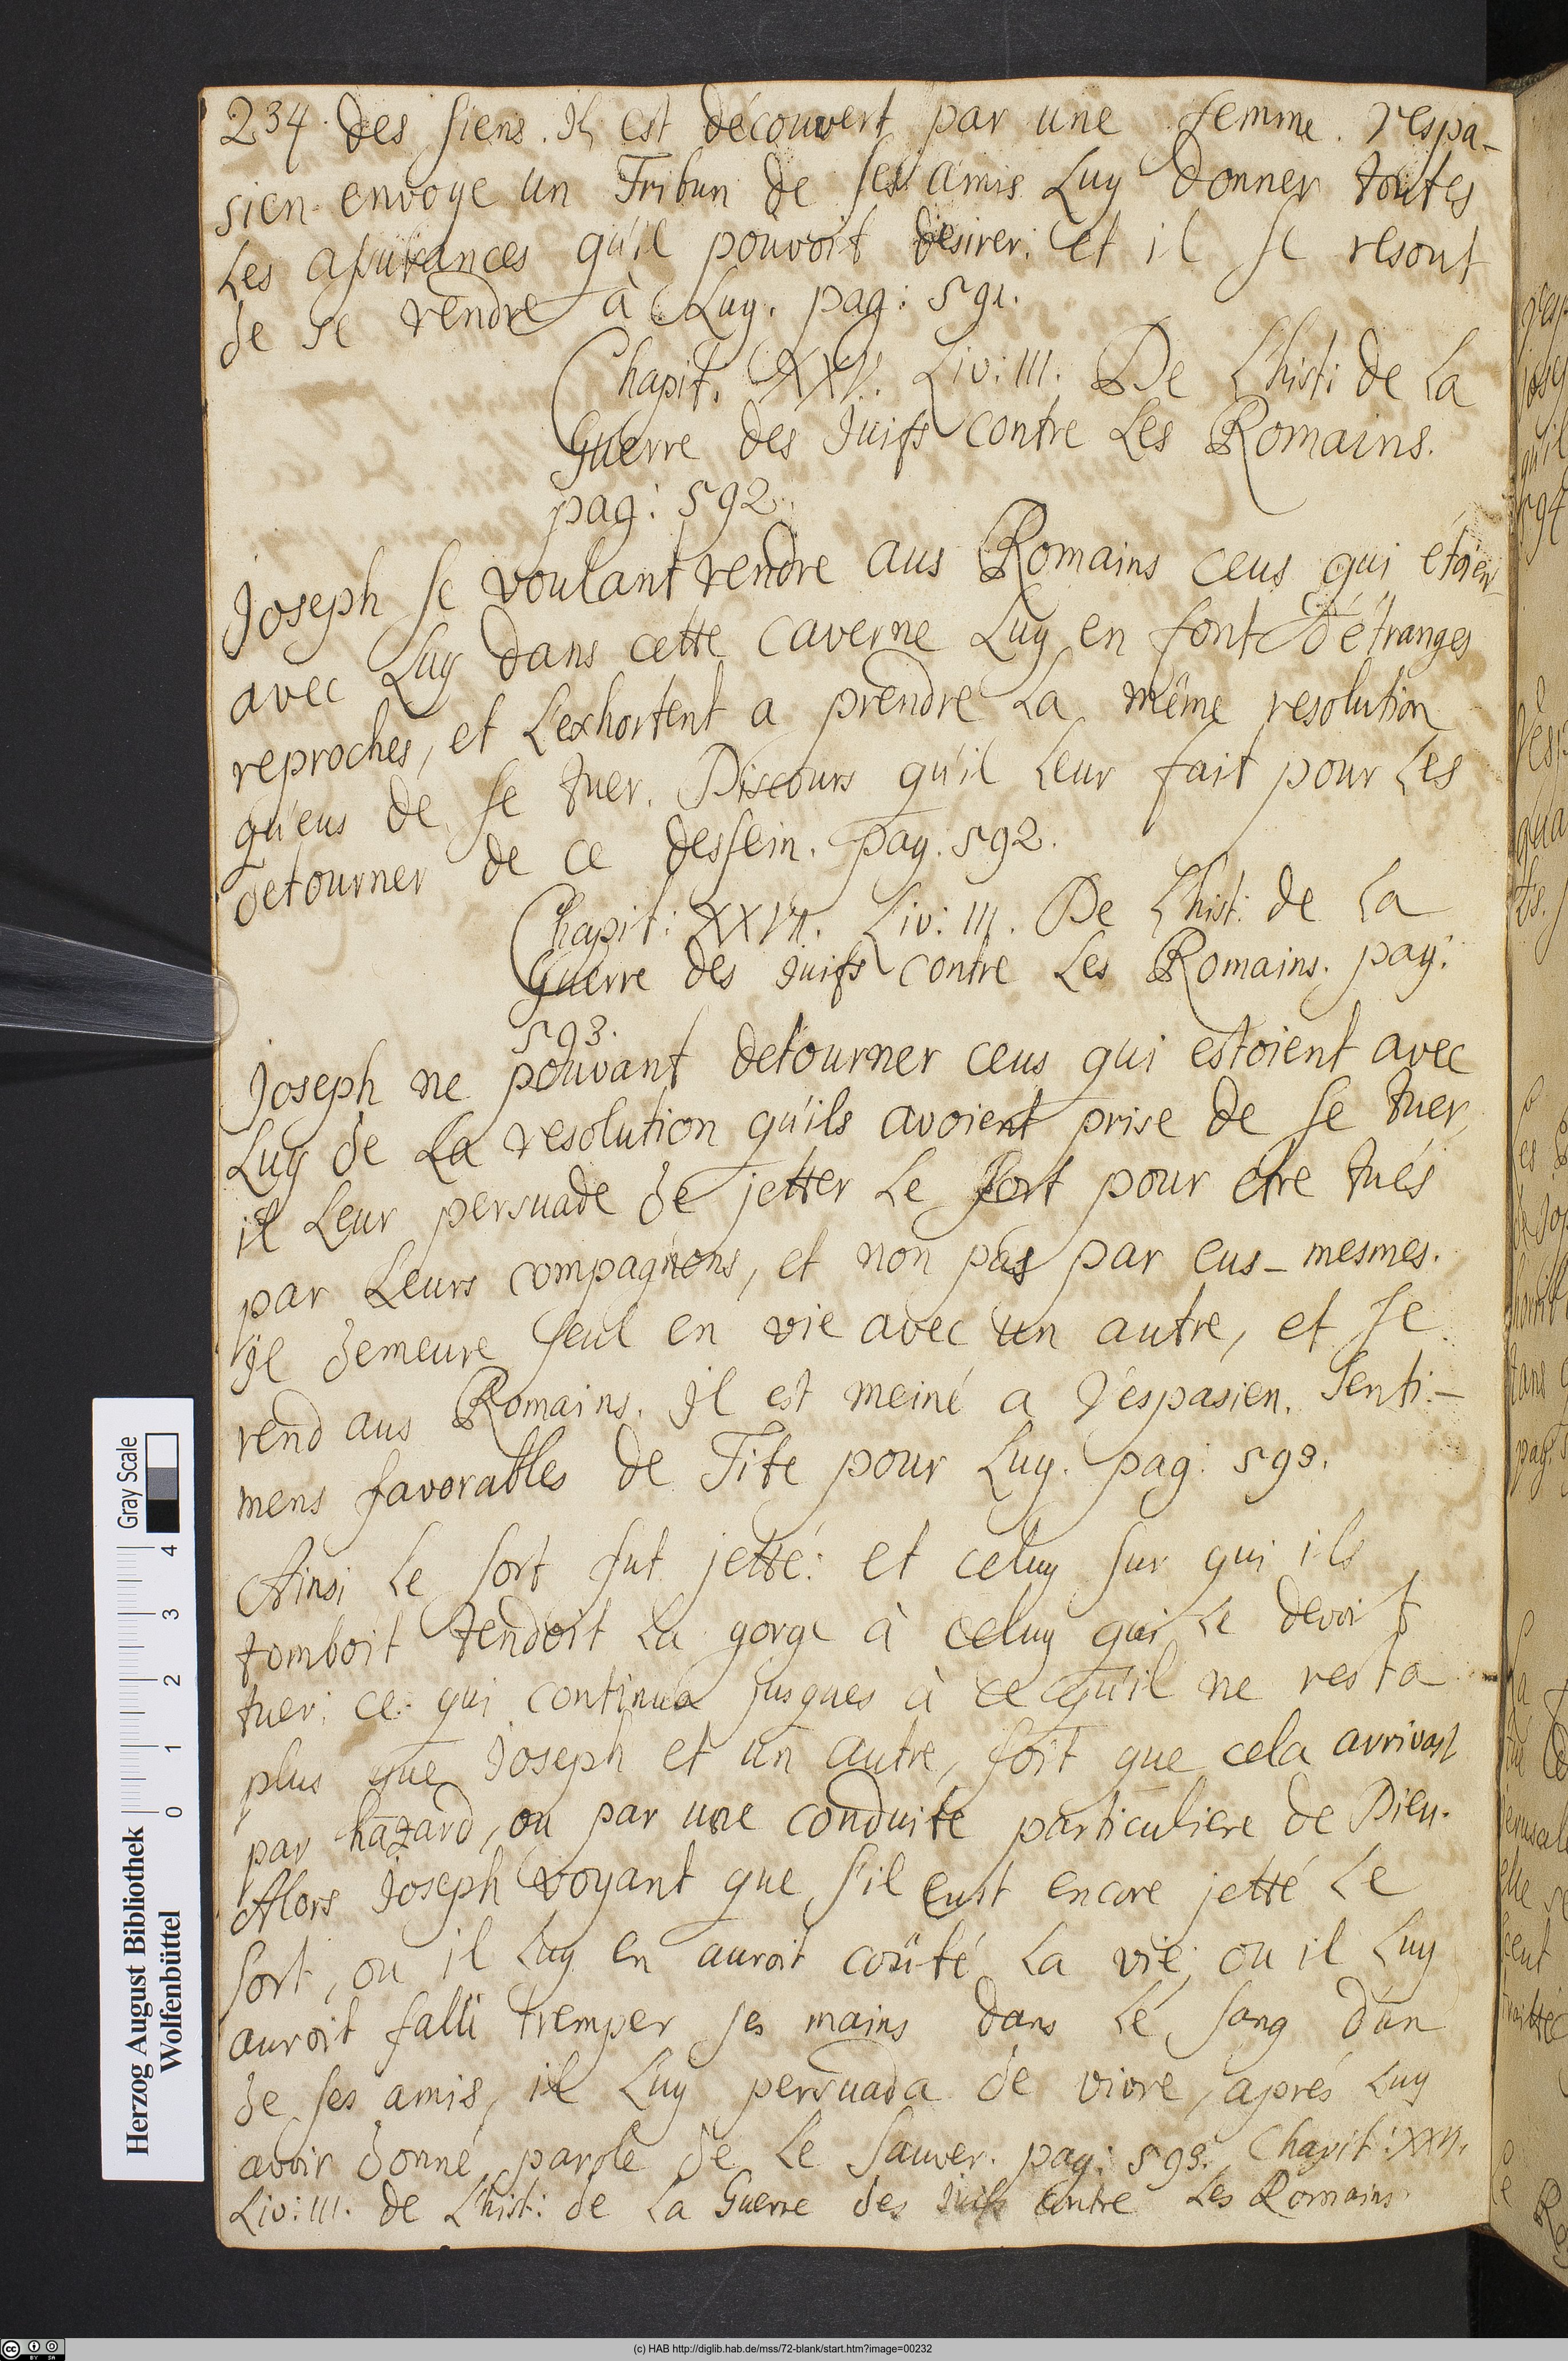 234. des siens. Il est découvert par une femme. Vespa-
sien envoye un Tribun de ses amis Luy donner toutes
Les assurances qu'il pouvoit desirer: et il se resout
de se rendre à Luy. pag: 591.
Chapit. XXV. Liv: III. De L'hist: de La
Guerre des Juifs contre Les Romains.
pag: 592.
Joseph se voulant rendre aus Romains ceus qui étoien
avec Luy dans cette caverne Luy en font d'étranges
reproches, et L'exhortent a prendre La même resolution
qu'eus de se tuer. Discours qu'il Leur fait pour Les
detourner de ce dessein. pag. 592.
Chapit: XXVI. Liv: III. De L'hist: de La
Guerre des Juifs contre Les Romains. pag:
593.
Joseph ne pouvant detourner ceus qui estoient avec
Luy de La resolution qu'ils avoient prise de se tuer,
il Leur persuade de jetter Le sort pour etre tués
par Leurs compagnons, et non pas par eus-mesmes.
Il demeure seul en vie avec un autre, et se
rend aus Romains. Il est meiné a Vespasien. Senti-
mens favorables de Tite pour Luy. pag: 593.
Ainsi Le sort fut jetté: et celuy sur qui ils
tomboit tendoit La gorge à celuy qui Le devoit
tuer: ce qui continua jusques à ce qu'il ne resta
plus que Joseph et un autre, soit que cela arrivast
par hazard, ou par une conduite particuliere de Dieu.
Alors Joseph voyant que s'il eust encore jetté Le
sort, ou il Luy en auroit coûté La vie, ou il Luy
auroit falli tremper ses mains dans Le sang d'un
de ses amis, il Luy persuada de vivre, aprés Luy
avoir donné parole de Le sauver. pag: 593. Chapit: XXVI.
Liv: III. de L'hist: de La Guerre des Juifs contre Les Romains
Herzog August Bibliothek
Wolfenbüttel
0 1 2 3 4
Gray Scale
(c) HAB http://diglib.hab.de/mss/72-blank/start.htm?image=00232